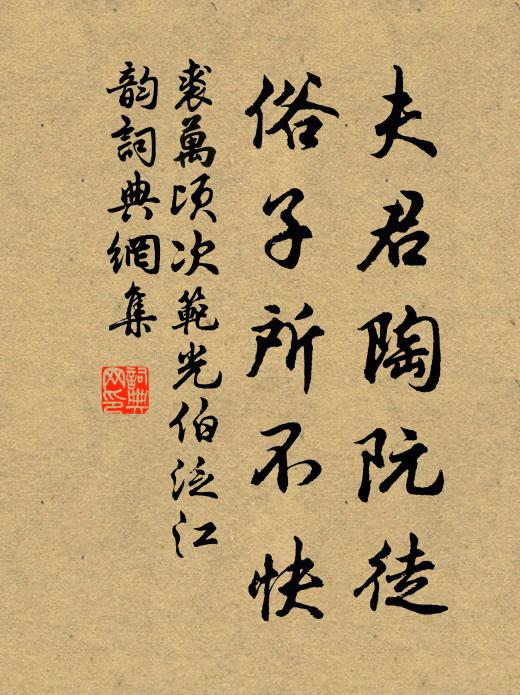 夫君陶阮徒
俗子所不快
裘萬頃次範光伯泛江
韵詞典網集
詞典網印